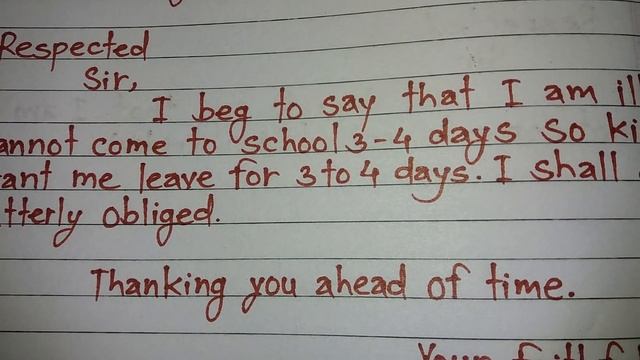 Respected
Sir,
I beg to say that I am ill
annot come to school 3-4 days so ki
ant me leave for 3 to 4 days. I shall
tterly obliged.
Thanking you ahead of time.